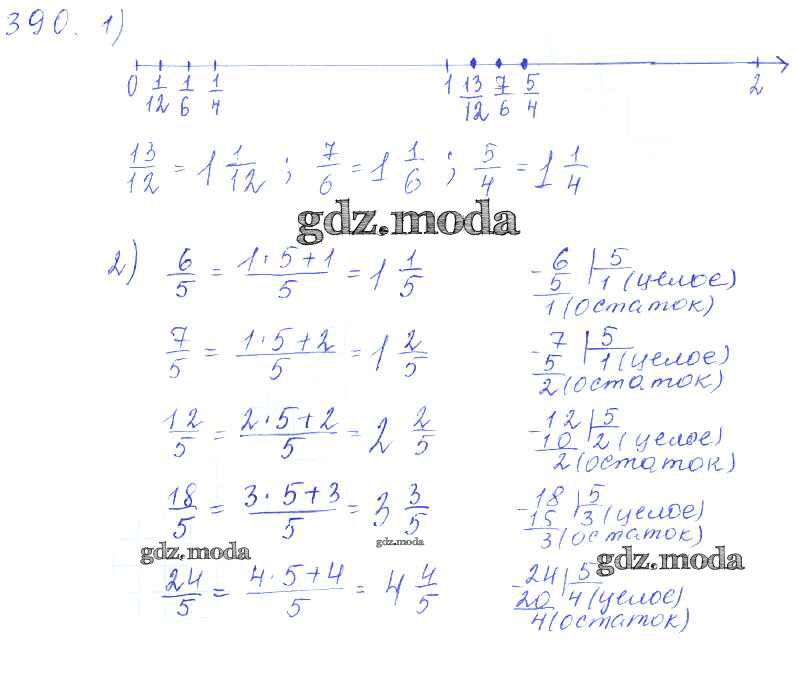 390. 1)
0 1/12 1/6 1/4 1 13/12 7/6 5/4 2
13/12 = 1 1/12 ; 7/6 = 1 1/6 ; 5/4 = 1 1/4
gdz.moda
2) 6/5 = 1·5+1/5 = 1 1/5
- 6 | 5
5 1 (целое)
1 (остаток)
7/5 = 1·5+2/5 = 1 2/5
- 7 | 5
5 1 (целое)
2 (остаток)
12/5 = 2·5+2/5 = 2 2/5
- 12 | 5
10 2 (целое)
2 (остаток)
18/5 = 3·5+3/5 = 3 3/5
- 18 | 5
15 3 (целое)
3 (остаток)
gdz.moda
gdz.moda
gdz.moda
24/5 = 4·5+4/5 = 4 4/5
- 24 | 5
20 4 (целое)
4 (остаток)